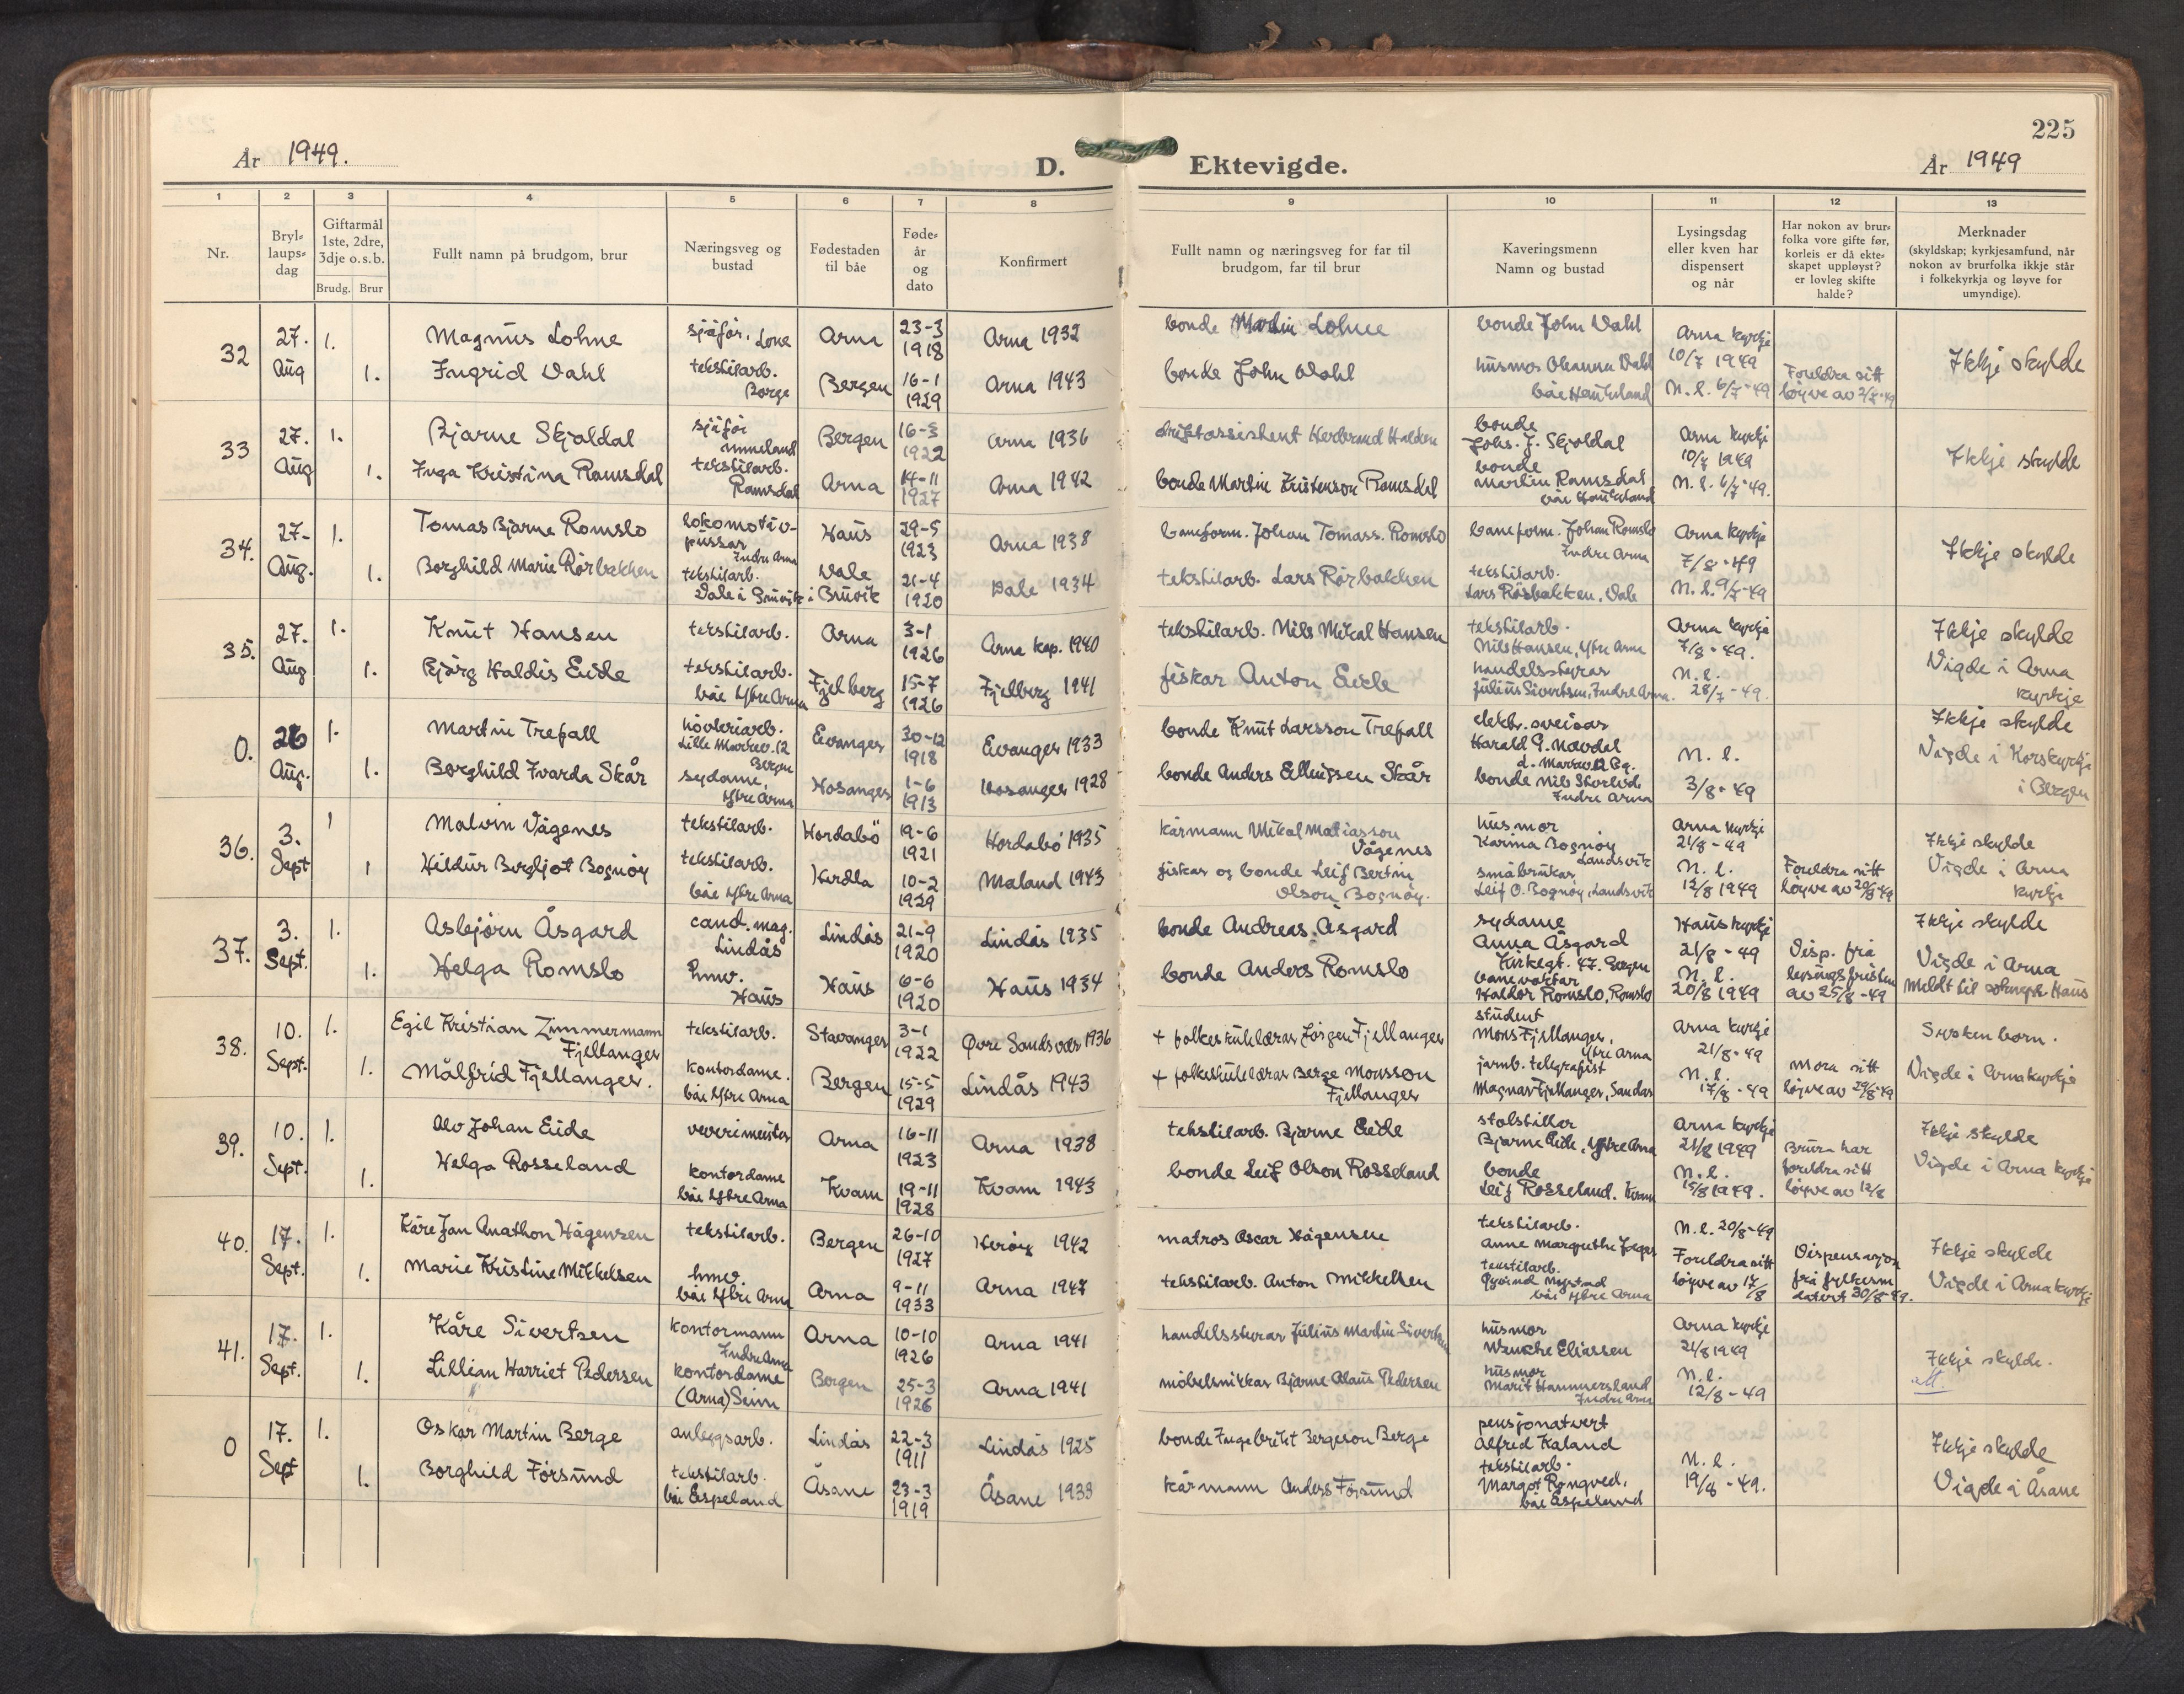 225
År 1949.
D. Ektevigde.
År 1949
1 2 3 4 5 6 7 8 9 10 11 12 13
Nr.
Bryl-
laups-
dag
Giftarmål
1ste, 2dre,
3dje o.s.b.
Brudg. Brur
Fullt namn på brudgom, brur
Næringsveg og
bustad
Fødestaden
til båe
Føde-
år
og
dato
Konfirmert
Fullt namn og næringsveg for far til
brudgom, far til brur
Kaveringsmenn
Namn og bustad
Lysingsdag
eller kven har
dispensert
og når
Har nokon av brur-
folka vore gifte før,
korleis er då ekte-
skapet uppløyst?
er lovleg skifte
halde?
Merknader
(skyldskap; kyrkjesamfund, når
nokon av brurfolka ikkje står
i folkekyrkja og løyve for
umyndige).
32
27.
Aug
1.
Magnus Lohne
sjåfør, Lone
Arna
23-3
1918
Arna 1932
bonde Martin Lohne
bonde John Dahl
Arna kyrkje
10/7 1949
Ikkje skylde
1.
Ingrid Dahl
tekstilarb.
Borge
Bergen
16-1
1929
Arna 1943
bonde John Dahl
husmor Oleanna Dahl
båe Haukeland
N. l. 6/7-49
Foreldra sitt
løyve av 2/7-49
33
27.
Aug
1.
Bjarne Skjoldal
sjåfør
Unneland
Bergen
16-3
1922
Arna 1936
driftassistent Herbrand Halden
bonde
Johs. J. Skjoldal
Arna kyrkje
10/7 1949
Ikkje skylde
1.
Inga Kristina Ramsdal
tekstilarb.
Ramsdal
Arna
14-11
1927
Arna 1942
bonde Martin Kristenson Ramsdal
bonde
Martin Ramsdal
båe Haukeland
N. l. 6/7-49.
34.
27-
Aug.
1.
Tomas Bjarne Romslo
lokomotiv-
pussar
Indre Arna
Haus
29-5
1923
Arna 1938
baneform. Johan Tomass. Romslo
baneform. Johan Romslo
Indre Arna
Arna kyrkje
7/8-49
Ikkje skylde
1.
Borghild Marie Rørbakken
tekstilarb.
Dale i Bruvik
Dale
i Bruvik
21-4
1920
Dale 1934
tekstilarb. Lars Rørbakken
tekstilarb.
Lars Rørbakken, Dale
N. l. 9/7-49
35.
27.
Aug
1.
Knut Hansen
tekstilarb.
Arna
3-1
1926
Arna kap. 1940
tekstilarb. Nils Mikal Hansen
tekstilarb.
Nils Hansen, Ytre Arna
Arna kyrkje
7/8-49.
Ikkje skylde
Vigde i Arna
kyrkje
1.
Bjørg Haldis Eide
tekstilarb.
båe Ytre Arna
Fjelberg
15-7
1926
Fjelberg 1941
fiskar Anton Eide
handelsstyrar
Julius Sivertsen, Indre Arna.
N. l.
28/7-49.
0.
26
Aug.
1.
Martin Trefall
høvleriarb.
Lille Markev. 12
Bergen
Evanger
30-12
1918
Evanger 1933
bonde Knut Larsson Trefall
elektr. sveisar
Harald G. Navdal
L. Markev 12 Bg.
N. l.
3/8-49
Ikkje skylde
Vigde i Korskyrkja
i Bergen
1.
Borghild Ivarda Skår
sydame,
Ytre Arna
Hosanger
1-6
1913
Hosanger 1928
bonde Anders Ellingsen Skår
bonde Nils Skarlid
Indre Arna
36.
3.
Sept
1
Malvin Vågenes
tekstilarb.
Hordabö
19-6
1921
Hordabö 1935
kårmann Mikal Matiasson
Vågenes
husmor
Karina Bognøy
Landsvik
Arna kyrkje
21/8-49
Ikkje skylde
Vigde i Arna
kyrkje
1
Hildur Bergljot Bognøy
tekstilarb.
båe Ytre Arna
Herdla
10-2
1929
Meland 1943
fiskar og bonde Leif Bertin
Olson Bognøy.
småbrukar
Leif O. Bognøy, Landsvik
N. l.
12/8 1949
Foreldra sitt
løyve av 20/8-49
37.
3.
Sept.
1.
Asbjørn Åsgard
cand. mag.
Lindås
Lindås
21-9
1920
Lindås 1935
bonde Andreas Åsgard
sydame
Anna Åsgard
Kirkegt. 47. Bergen
Haus kyrkje
21/8-49
Disp. frå
lysingsfristen
av 25/8-49
Ikkje skylde
Vigde i Arna
Meldt til sokneprest Haus
1.
Helga Romslo
hmv.
Haus
Haus
6-6
1920
Haus 1934
bonde Anders Romslo
banevaktar
Haldor Romslo, Romslo
N. l.
20/8 1949
38.
10.
Sept.
1.
Egil Kristian Zimmermann
Fjellanger
tekstilarb.
Stavanger
3-1
1922
Øvre Sandsvær 1936
+ folkeskulelærar Jørgen Fjellanger
student
Mons Fjellanger,
Ytre Arna
Arna kyrkje
21/8-49
Sysken born.
Vigde i Arna kyrkje
1.
Målfrid Fjellanger.
kontordame.
båe Ytre Arna
Bergen
15-5
1929
Lindås 1943
+ folkeskulelærar Berge Monsson
Fjellanger
jarnb. telegrafist
Magnar Fjellanger, Sandar
N. l.
17/8-49
Mora sitt
løyve av 29/8-49
39.
10.
Sept.
1.
Alv Johan Eide
vevermeister
Arna
16-11
1923
Arna 1938
tekstilarb. Bjarne Eide
stolstillar
Bjarne Eide, Ytre Arna
Arna kyrkje
21/8 1949
Brura har
foreldra sitt
løyve av 12/8
Ikkje skylde
Vigde i Arna kyrkje
1.
Helga Rosseland
kontordame
båe Ytre Arna
Kvam
19-11
1928
Kvam 1943
bonde Leif Olson Rosseland
bonde
Leif Rosseland. Kvam
N. l.
15/8 1949.
40.
17.
Sept.
1.
Kåre Jan Anathon Hågensen
tekstilarb.
Bergen
26-10
1927
Herøy 1942
matros Oscar Hågensen
tekstilarb.
Anne Margrethe
N. l. 20/8-49
Foreldra sitt
løyve av 17/8
Dispensasjon
frå fylkesm.
datert 30/8-49.
Ikkje skylde
Vigde i Arna kyrkje
1.
Marie Kristine Mikkelsen
hmv.
båe Ytre Arna
Arna
9-11
1933
Arna 1947
tekstilarb. Anton Mikkelsen
tekstilarb.
Øyvind
båe Ytre Arna
41.
17.
Sept.
1.
Kåre Sivertsen
kontormann
Indre Arna
Arna
10-10
1926
Arna 1941
handelsstyrar Julius Martin Sivertsen
husmor
Wenche Eliassen
Arna kyrkje
21/8 1949
Ikkje skylde.
att.
1.
Lillian Harriet Pedersen
kontordame
(Arna) Seim
Bergen
25-3
1926
Arna 1941
möbelsnikkar Bjarne Olaus Pedersen
husmor
Marit Hammersland
Indre Arna
N. l.
12/8-49
0
17.
Sept
1.
Oskar Martin Berge
anleggsarb.
Lindås
22-3
1911
Lindås 1925
bonde Ingebrikt Bergeson Berge
pensjonatvert
Alfred Kaland
N. l.
19/8-49.
Ikkje skylde
Vigde i Åsane
1.
Borghild Försund
tekstilarb.
båe Espeland
Åsane
23-3
1919
Åsane 1933
kårmann Anders Försund
tekstilarb.
Margot Rongved,
båe Espeland